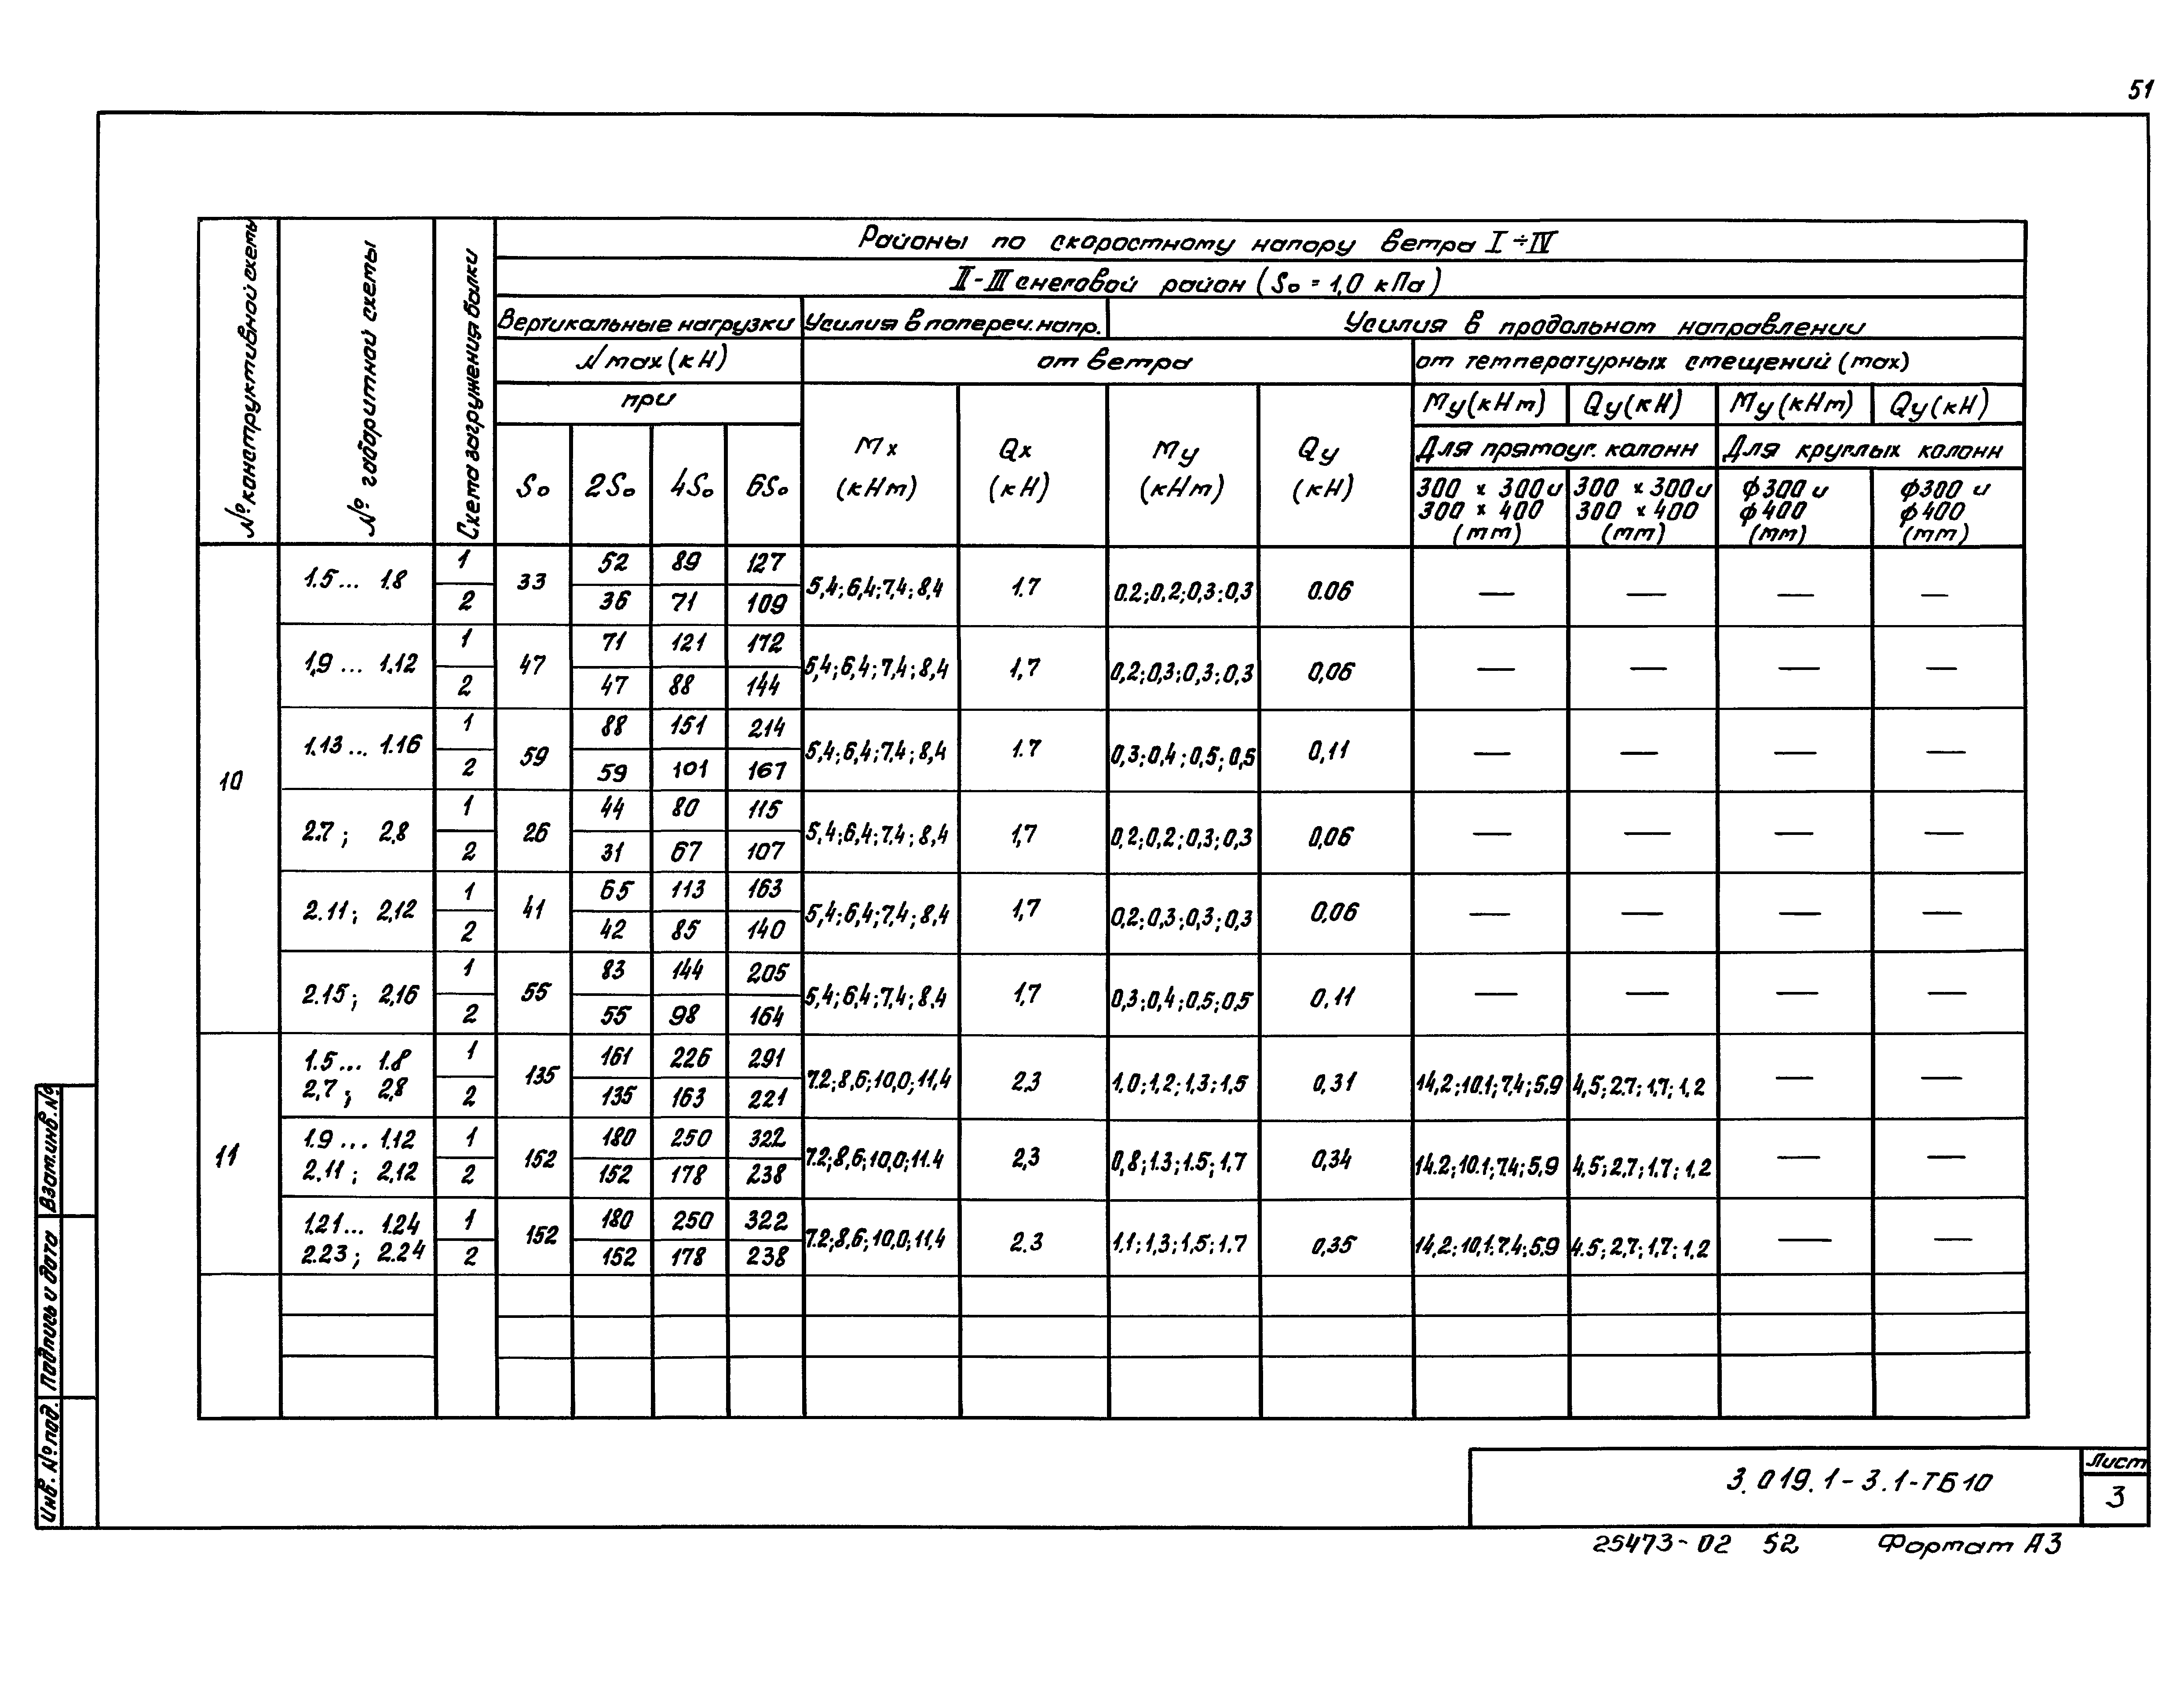 51
№ конструктивной схемы
№ габаритной схемы
Схема загружения балки
Районы по скоростному напору ветра I ÷ IV
II - III снеговой район (S₀ = 1,0 кПа)
Вертикальные нагрузки Усилия в попереч. напр. Усилия в продольном направлении
Nmax (кН) от ветра от температурных смещений (max)
при Mx (кНт) Qx (кН) My (кНт) Qy (кН) My (кНт) Qy (кН) My (кНт) Qy (кН)
Для прямоуг. колонн Для круглых колонн
S₀ 2S₀ 4S₀ 6S₀ 300 × 300 и 300 × 400 (mm) 300 × 300 и 300 × 400 (mm) ф300 и ф400 (mm) ф300 и ф400 (mm)
10
1.5... 1.8 1 33 52 89 127 5,4; 6,4; 7,4; 8,4 1.7 0.2; 0,2; 0,3; 0,3 0.06 — — — —
2 36 71 109
1,9 ... 1.12 1 47 71 121 172 5,4; 6,4; 7,4; 8,4 1,7 0,2; 0,3; 0,3; 0,3 0,06 — — — —
2 47 88 144
1.13... 1.16 1 59 88 151 214 5,4; 6,4; 7,4; 8,4 1.7 0,3; 0,4; 0,5; 0,5 0,11 — — — —
2 59 101 167
2.7; 2,8 1 26 44 80 115 5,4; 6,4; 7,4; 8,4 1,7 0,2; 0,2; 0,3; 0,3 0,06 — — — —
2 31 67 107
2.11; 2,12 1 41 65 113 163 5,4; 6,4; 7,4; 8,4 1,7 0,2; 0,3; 0,3; 0,3 0,06 — — — —
2 42 85 140
2.15; 2,16 1 55 83 144 205 5,4; 6,4; 7,4; 8,4 1,7 0,3; 0,4; 0,5; 0,5 0,11 — — — —
2 55 98 164
11
1.5... 1.8 1 135 161 226 291 7.2; 8,6; 10,0; 11,4 2,3 1,0; 1,2; 1,3; 1,5 0,31 14,2; 10.1; 7,4; 5,9 4,5; 2.7; 1,7; 1,2 — —
2,7; 2,8 2 135 163 221
1.9 ... 1.12 1 152 180 250 322 7.2; 8,6; 10,0; 11.4 2,3 0,8; 1.3; 1.5; 1.7 0,34 14.2; 10.1; 7.4; 5,9 4,5; 2,7; 1.7; 1,2 — —
2.11; 2,12 2 152 178 238
1.21... 1.24 1 152 180 250 322 7.2; 8,6; 10,0; 11,4 2.3 1,1; 1,3; 1,5; 1.7 0,35 14,2; 10,1; 7.4; 5,9 4.5; 2,7; 1,7; 1,2 — —
2.23; 2.24 2 152 178 238
Взам.инв.№
Подпись и дата
Инв. № под.
3.019.1-3.1-ТБ10
Лист
3
25473-02 52 Формат А3